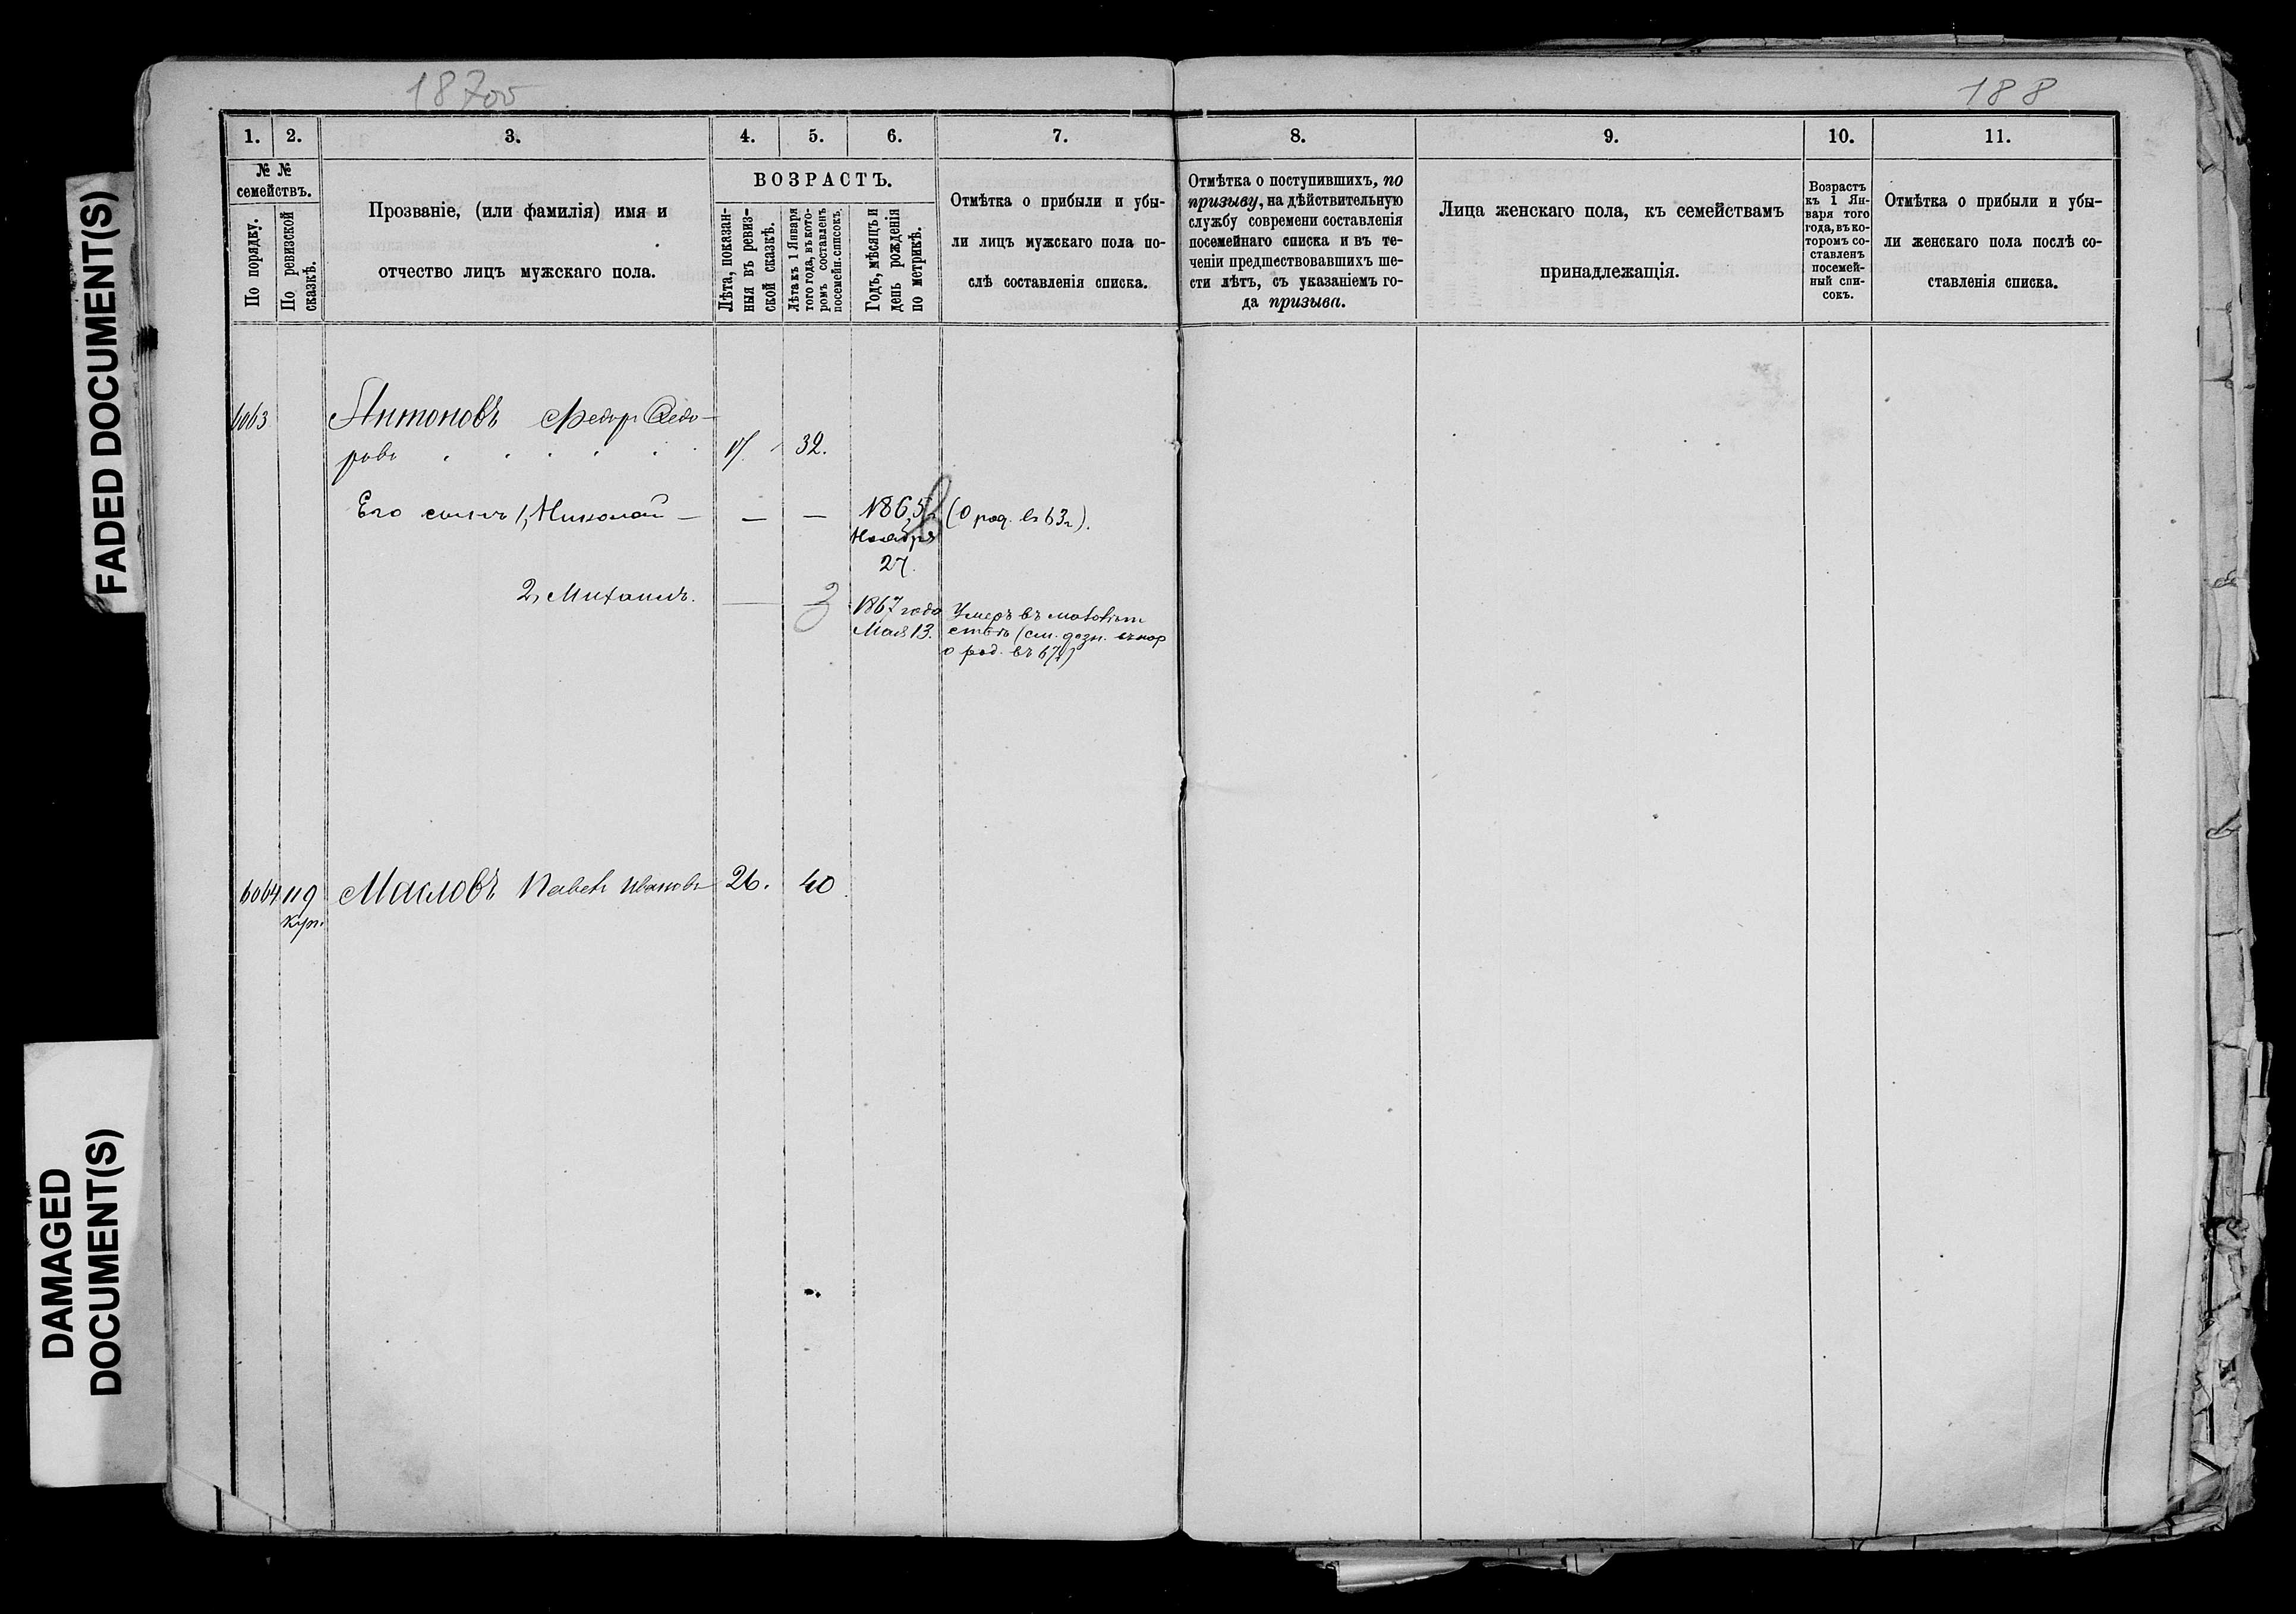 FADED DOCUMENT(S)
DAMAGED
DOCUMENT(S)
187об
188
1.
2.
3.
4.
5.
6.
7.
8.
9.
10.
11.
№ №
семействъ.
По порядку.
По ревизской
сказкѣ.
Прозваніе, (или фамилія) имя и
отчество лицъ мужскаго пола.
ВОЗРАСТЪ.
Лѣта, показан-
ныя въ ревиз-
ской сказкѣ.
Лѣта къ 1 Января
того года, въ кото-
ромъ составленъ
посемейн. списокъ.
Годъ, мѣсяцъ и
день рожденія
по метрикѣ.
Отмѣтка о прибыли и убы-
ли лицъ мужскаго пола по-
слѣ составленія списка.
Отмѣтка о поступившихъ, по
призыву, на дѣйствительную
службу современи составленія
посемейнаго списка и въ те-
ченіи предшествовавшихъ ше-
сти лѣтъ, съ указаніемъ го-
да призыва.
Лица женскаго пола, къ семействамъ
принадлежащія.
Возрастъ
къ 1 Ян-
варя того
года, въ ко-
торомъ со-
ставленъ
посемей-
ный спи-
сокъ.
Отмѣтка о прибыли и убы-
ли женскаго пола послѣ со-
ставленія списка.
6063
Антоновъ Федоръ Федо-
ровъ
17. 32.
Его сынъ 1, Николай — — — 1865 (О род. въ 63г).
Ноября
27.
2, Михаилъ. — 3 1867 года
Мая 13.
Умеръ въ
о род. въ 67г)
6064 119 Масловъ Павелъ Ивановъ 26. 40
куп.